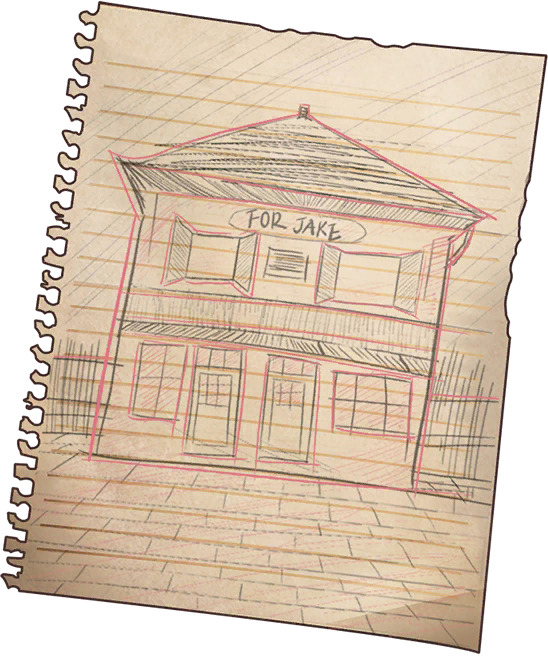 FOR JAKE